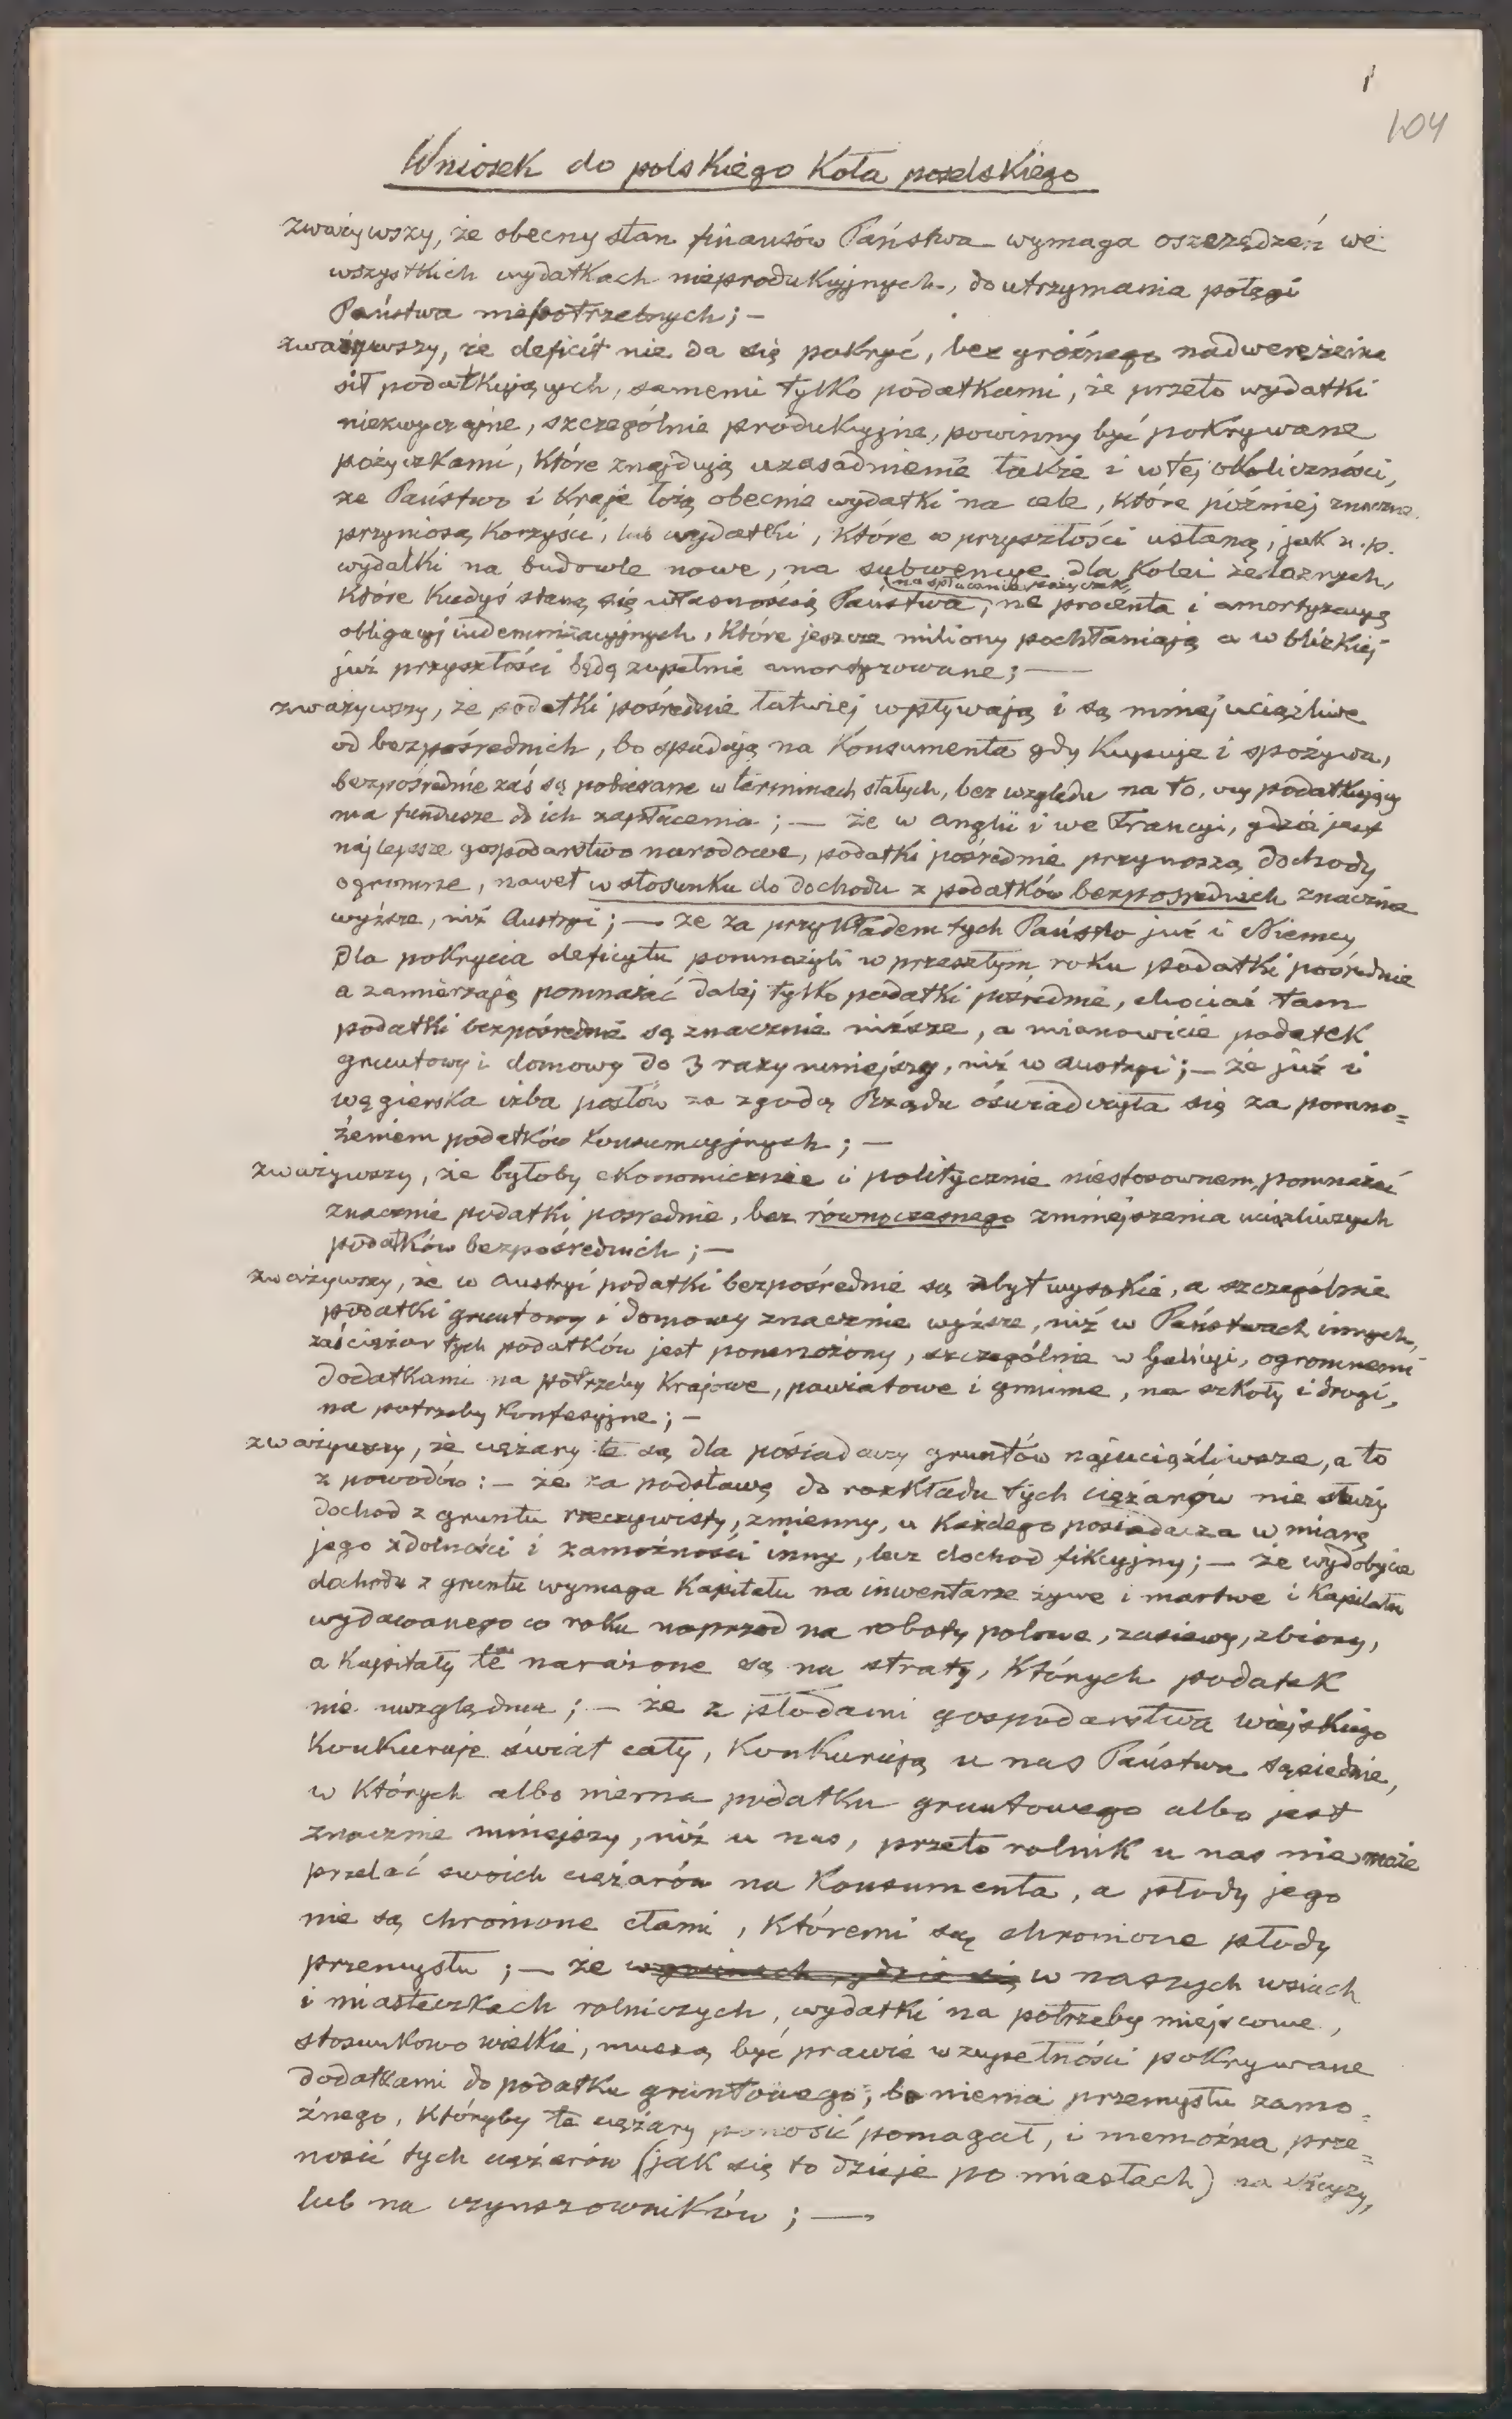 104
Wniosek do polskiego Koła poselskiego
zważywszy, że obecny stan finansów Państwa wymaga oszczędzeń we
wszystkich wydatkach nieprodukcyjnych, do utrzymania potęgi
Państwa niepotrzebnych; —
zważywszy, że deficit nie da się pokryć, bez groźnego nadwerężenia
sił podatkujących, samemi tylko podatkami, że przeto wydatki
niezwyczajne, szczególnie produkcyjne, powinny być pokrywane
pożyczkami, które znajdują uzasadnienie także i w tej okoliczności,
że Państwo i Kraje łożą obecnie wydatki na cele, które później znaczne
przyniosą korzyści, lub wydatki, które w przyszłości ustaną, jak n.p.
wydatki na budowle nowe, na subwencye dla kolei żelaznych,
na spłacanie pożyczek,
które kiedyś staną się własnością Państwa, na procenta i amortyzacyę
obligacyj indemnizacyjnych, które jeszcze miliony pochłaniają a w blizkiej
już przyszłości będą zupełnie amortyzowane; —
zważywszy, że podatki pośrednie łatwiej wpływają i są mniej uciążliwe
od bezpośrednich, bo spadają na Konsumenta gdy kupuje i spożywa,
bezpośrednie zaś są pobierane w terminach stałych, bez względu na to, czy podatkujący
ma fundusze do ich zapłacenia; — że w Anglii i we Francyi, gdzie jest
najlepsze gospodarstwo narodowe, podatki pośrednie przynoszą dochody
ogromne, nawet w stosunku do dochodu z podatków bezpośrednich znacznie
wyższe, niż Austryi; — że za przykładem tych Państw już i Niemcy
dla pokrycia deficytu pomnożyli w przeszłym roku podatki pośrednie
a zamierzają pomnażać dalej tylko podatki pośrednie, chociaż tam
podatki bezpośrednie są znacznie niższe, a mianowicie podatek
gruntowy i domowy do 3 razy mniejszy, niż w Austryi; — że już i
węgierska izba posłów za zgodą Rządu oświadczyła się za pomno=
żeniem podatków konsumcyjnych; —
zważywszy, że byłoby ekonomicznie i politycznie niestosownem, pomnażać
znacznie podatki pośrednie, bez równoczesnego zmniejszenia uciążliwszych
podatków bezpośrednich; —
zważywszy, że w Austryi podatki bezpośrednie są zbyt wysokie, a szczególnie
podatki gruntowy i domowy znacznie wyższe, niż w Państwach innych,
zaś ciężar tych podatków jest pomnożony, szczególnie w Galicyi, ogromnemi
dodatkami na potrzeby Krajowe, powiatowe i gminne, na szkoły i drogi,
na potrzeby Konfesyjne; —
zważywszy, że ciężary te są dla posiadaczy gruntów najuciążliwsze, a to
z powodów: — że za podstawę do rozkładu tych ciężarów nie służy
dochod z gruntu rzeczywisty, zmienny, u każdego posiadacza w miarę
jego zdolności i zamożności inny, lecz dochod fikcyjny; — że wydobycie
dochodu z gruntu wymaga Kapitału na inwentarze żywe i martwe i Kapitału
wydawanego co roku naprzod na roboty polowe, zasiewy, zbiory,
a Kapitały te narażone są na straty, których podatek
nie uwzględnia; — że z płodami gospodarstwa wiejskiego
Konkuruje świat cały, Konkurują u nas Państwa sąsiednie,
w których albo niema podatku gruntowego albo jest
znacznie mniejszy, niż u nas, przeto rolnik u nas nie może
przelać swoich ciężarów na Konsumenta, a płody jego
nie są chronione cłami, któremi są chronione płody
przemysłu; — że w gminach, gdzie się w naszych wsiach
i miasteczkach rolniczych, wydatki na potrzeby miejscowe,
stosunkowo wielkie, muszą być prawie w zupełności pokrywane
dodatkami do podatku gruntowego, bo niema przemysłu zamo=
żnego, któryby te ciężary ponosić pomagał, i niemożna prze=
nosić tych ciężarów (jak się to dzieje po miastach) na
lub na czynszowników; —